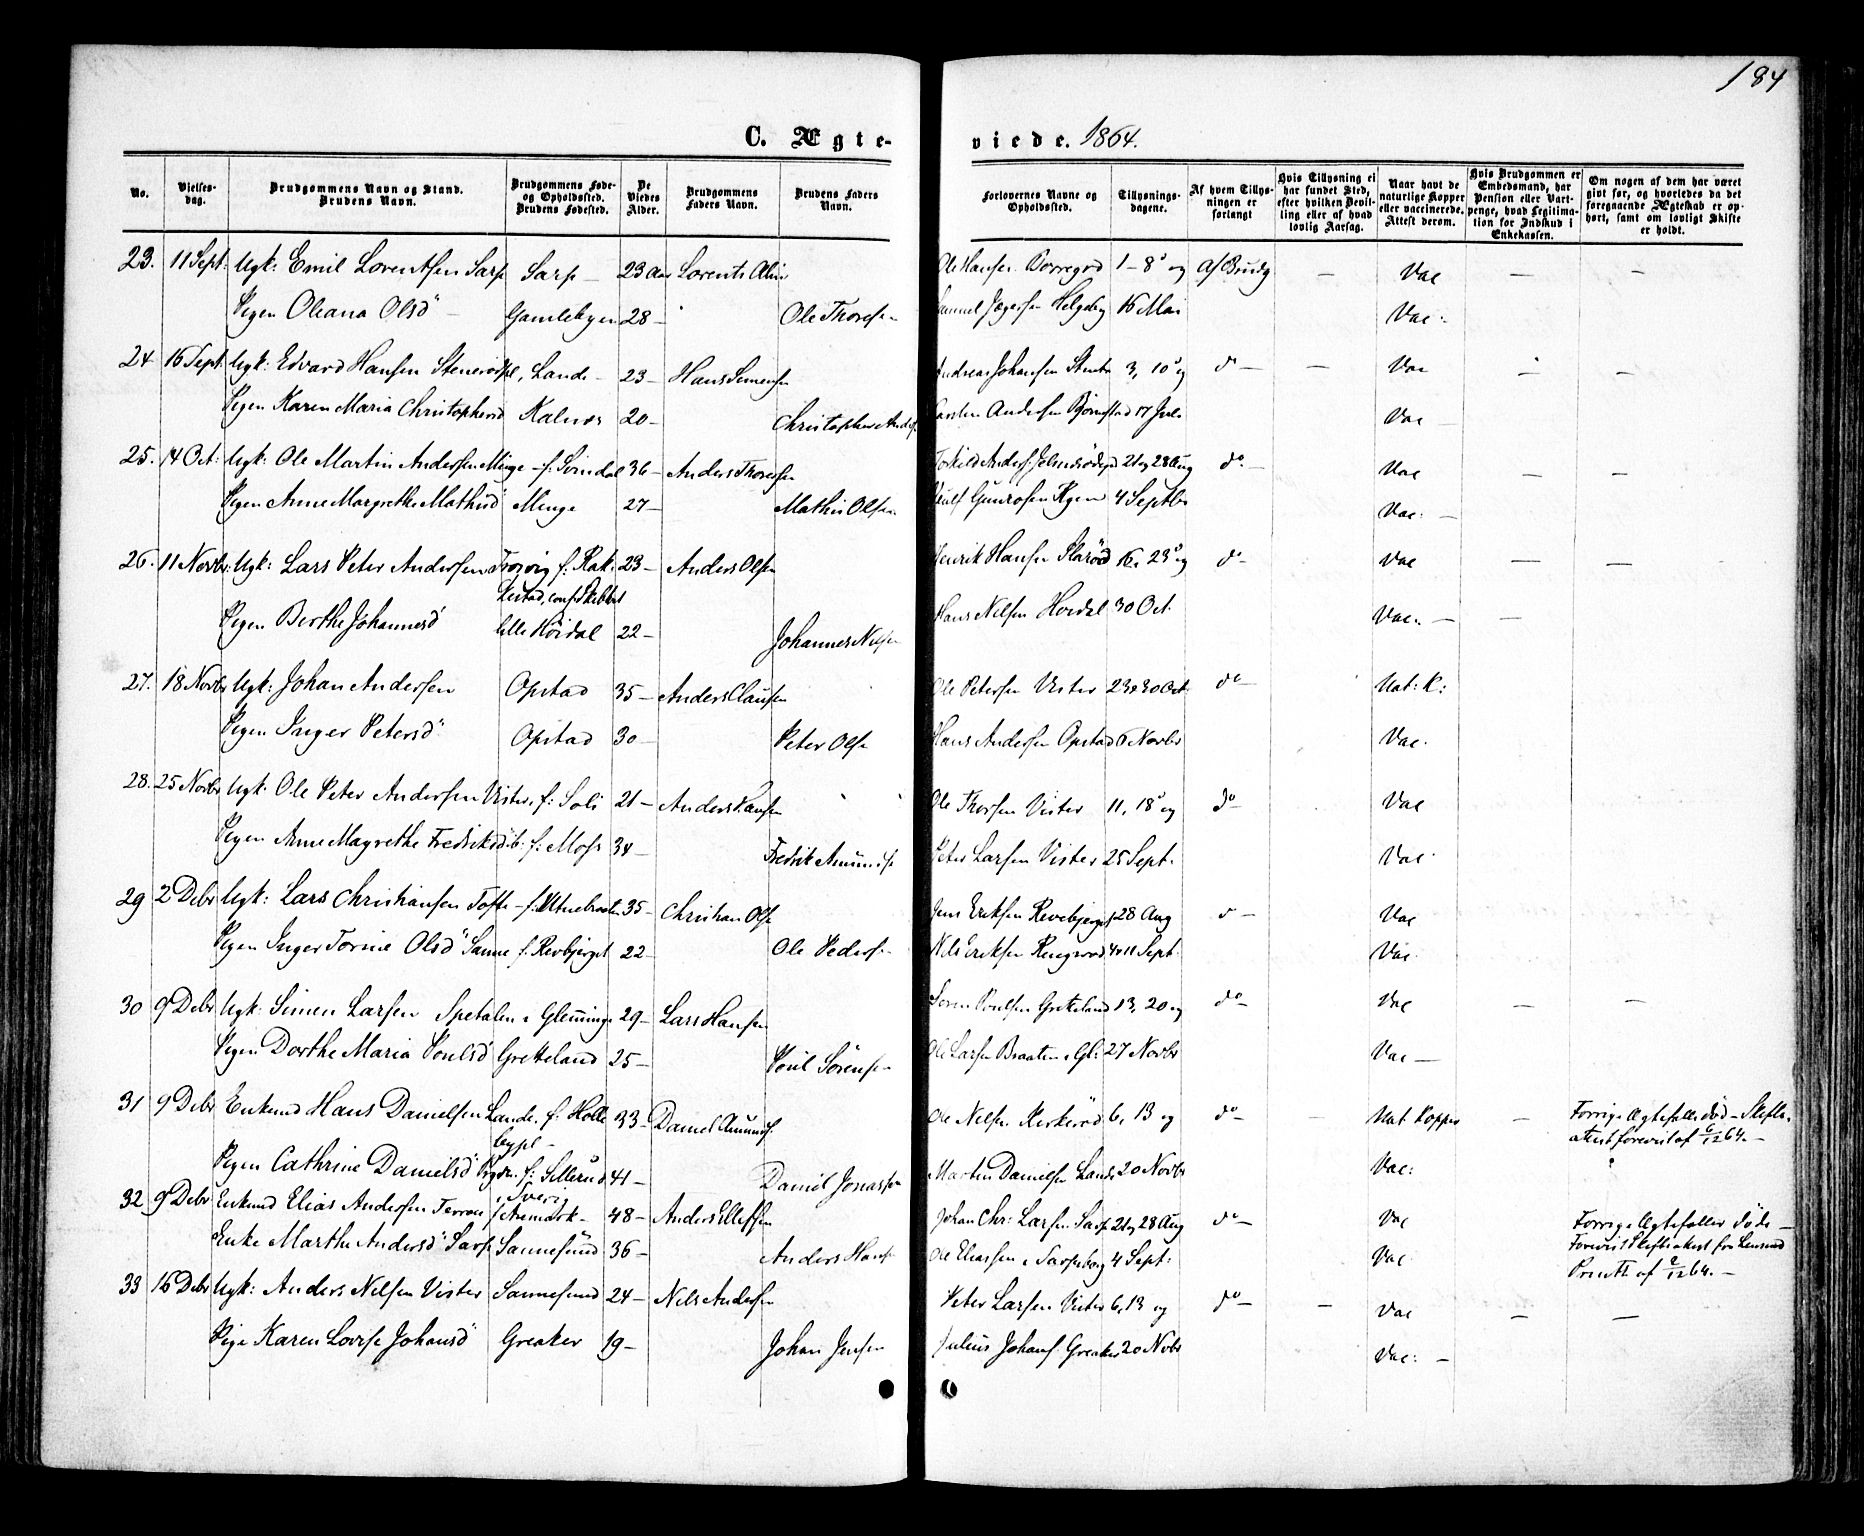 184
C. Ægte- viede. 1864.
No. Vielses-dag. Brudgommens Navn og Stand. Brudens Navn. Brudgommens Føde- og Opholdssted. Brudens Fødested. De Viedes Alder. Brudgommens Faders Navn. Brudens Faders Navn. Forlovernes Navne og Opholdssted. Tillysnings-dagene. Af hvem Tillysningen er forlangt Hvis Tillysning ei har fundet Sted, efter hvilken Bevilling eller af hvad lovlig Aarsag. Naar havt de naturlige Kopper eller vaccinerede. Attest derom. Hvis Brudgommen er Embedsmand, har Pension eller Vartpenge, hvad Legitimation for Indskud i Enkekassen. Om nogen af dem har været givt før, og hvorledes da det foregaaende Ægteskab er ophørt, samt om lovligt Skifte er holdt.
23. 11 Sept: Ugk: Emil Lorentsen Sarp Sarp — 23 Aar Lorents Ole Hansen Borregrd 1 - 8 og Af Brudg — Vac — —
Pigen Oleana Olsd Gamlebyen 28 — Ole Thoresen Samuel Helgeby 16 Mai Vac:
24 16 Sept: Ugk: Edvard Hansen Lande — 23 — Hans Simensen Andreas Johansen 3, 10 og do — — Vac — —
Pigen Karen Maria Christophersd Kalnes 20 — Christopher Carsten Andersen Bjørnstad 17 Vac —
25. 14 Oct: Ugk: Ole Martin Andersen Minge — f: Svindal 36 — Anders Thoresen 21 og 28 Aug do. — Vac — —
Pigen Anne Margrethe Mathisd Minge 27 — Mathis Olsen 4 Septbr Vac: —
26. 11 Novbr: Ugk: Lars Peter Andersen f: Rak- 23 — Anders Olsen Henrik Hansen 16, 23 og do — Vac — —
kestad,
Pigen Berthe Johannesd lille Höidal 22 — Johannes Nilsen Hans Nilsen Hoidal 30 Oct. Vac. — —
27. 18 Novbr Ugk: Johan Andersen Opstad 35 — Anders Clausen Ole Petersen Vister 23 & 30 Oct: do — Nat: K:
Pigen Inger Petersd Opstad 30 — Peter Olse Hans Andersen Opstad 6 Novbr Vac.
28. 25 Novbr Ugk. Ole Peter Andersen Vister, f: Soli 21 — Anders Hansen Ole Thorsen Vister 11, 18 og do — Vac
Pigen Anne Magrethe Fredriksd f: Moss 34 — Fredrik Peter Larsen Vister 25 Sept. Vac
29 2 Debr Ugk: Lars Christiansen Tofte — f: 35 — Christian Olse Jens Eriksen 28 Aug Vac
Pigen Inger Torine Olsd Sanne f. Revbjerget 22 — Ole Pedersen Nils Eriksen 4 & 11 Sept. Vac
30 9 Debr Ugk: Simen Larsen Spetalen i Glemminge 29 — Lars Hansen Søren Poulsen Gretteland 13, 20 og do — Vac — —
Pigen Dorthe Maria Poulsd Gretteland 25 — Poul Sörensen Ole Larsen Braaten i Gl: 27 Novbr Vac —
31 9 Debr Enkemd Hans Danielsen Lande. f: 33 — Daniel Ole Nilsen Kirkeröd 6, 13 og do — — Nat Kopper — Forrige Ægtefælle død — Skifte-
attest forevist af 6/12 64. —
Pigen Cathrine Danielsd f: Sillerud 41 — Daniel Jonassen Martin Danielsen Lande 20 Novbr Vac:
i Sverig
32. 9 Debr Enkemd Elias Andersen f: Aremark — 48 — Anders Johan Chr: Larsen Sarp 21 og 28 Aug do — Vac Forrige Ægtefæller døde —
Enke Marthe Andersd Sarp Sannesund 36 — Anders Hans Ole Eliassen i Sarpsborg 4 Sept: Vac Forevist Skifteattest fra Lensmd
af 2/12 64. —
33 16 Debr Ugk: Anders Nilsen Vister Sannesund 24 — Nils Andersen Peter Larsen Vister 6, 13 og do — — Vac — —
Pige Karen Lovise Johansd Greaker 19 — Johan Jensen Julius Johans. Greaker 20 Novbr Vac: —